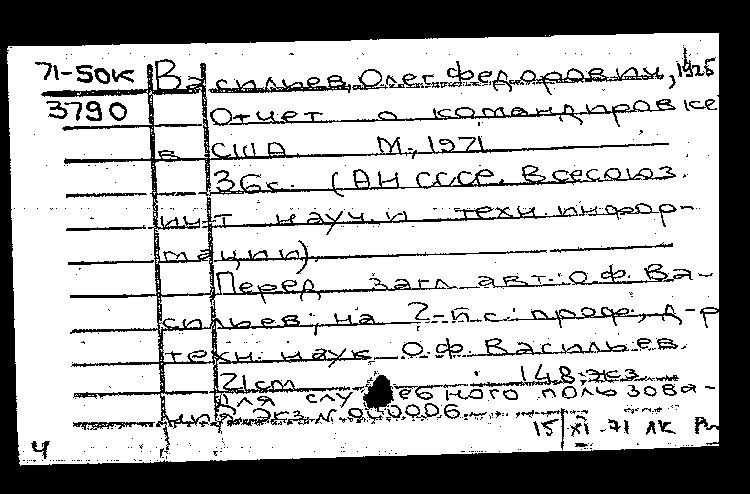 71-50к Васильев, Олег Федорович, 1925
3790 Отчет о командировке
в США М., 1971
36с. (АН СССР. Всесоюз.
ин-т науч. и техн. инфор-
мации).
Перед загл. авт.: О.Ф. Ва-
сильев; на 2-й с.: проф., д-р
техн. наук О.Ф. Васильев.
21см 148 экз.
Для служебного пользова-
ния Экз. N 000006
15/XI-71 ЛК
4